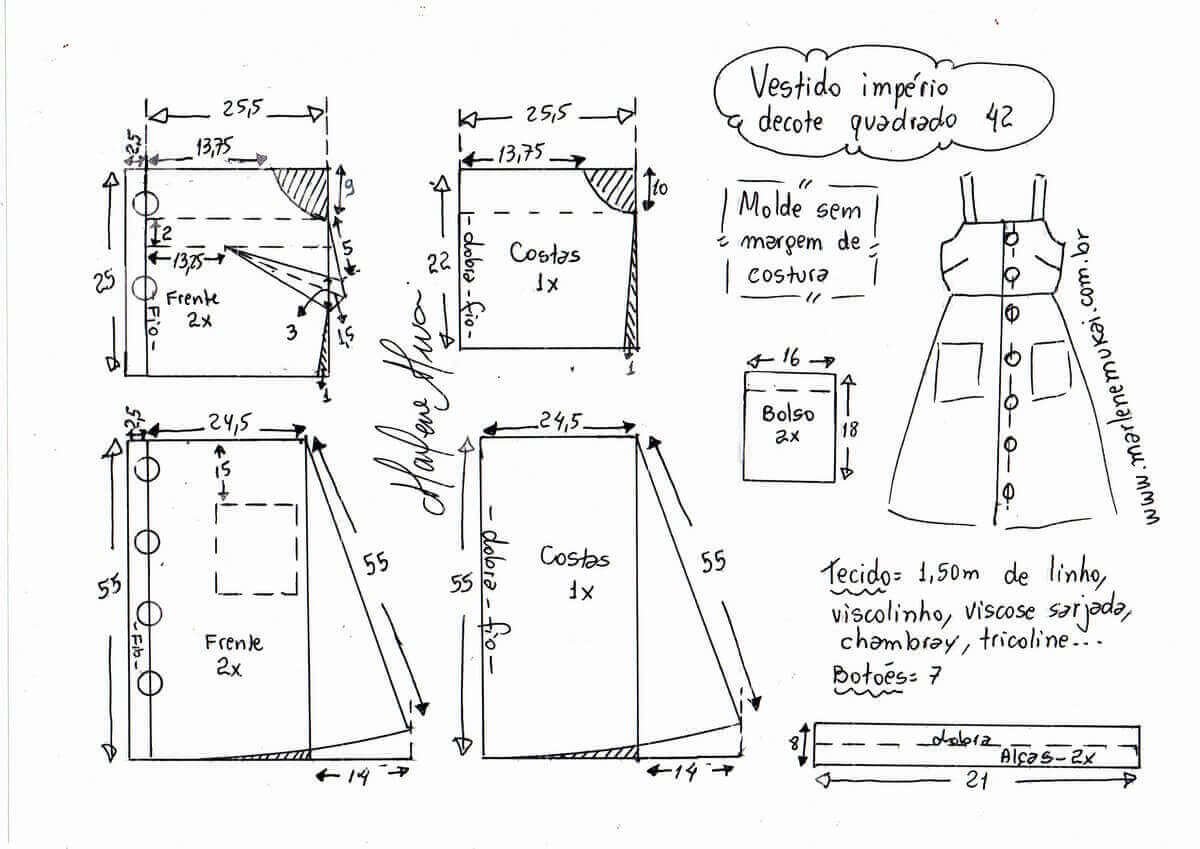 Vestido império
decote quadrado 42
Molde sem
margem de
costura
25,5
2,5
13,75
9
2
5
13,75
25
Frente
2x
-Fio-
3
1,5
1
25,5
13,75
10
22
-dobra-fio-
Costas
1x
1
Marlene Mukai
16
Bolso
2x
18
www.marlenemukai.com.br
2,5
24,5
15
55
55
-Fio-
Frente
2x
14
24,5
55
-dobra-fio-
Costas
1x
55
14
Tecido= 1,50m de linho,
viscolinho, viscose sarjada,
chambray, tricoline...
Botoés= 7
8
dobra
Alças-2x
21